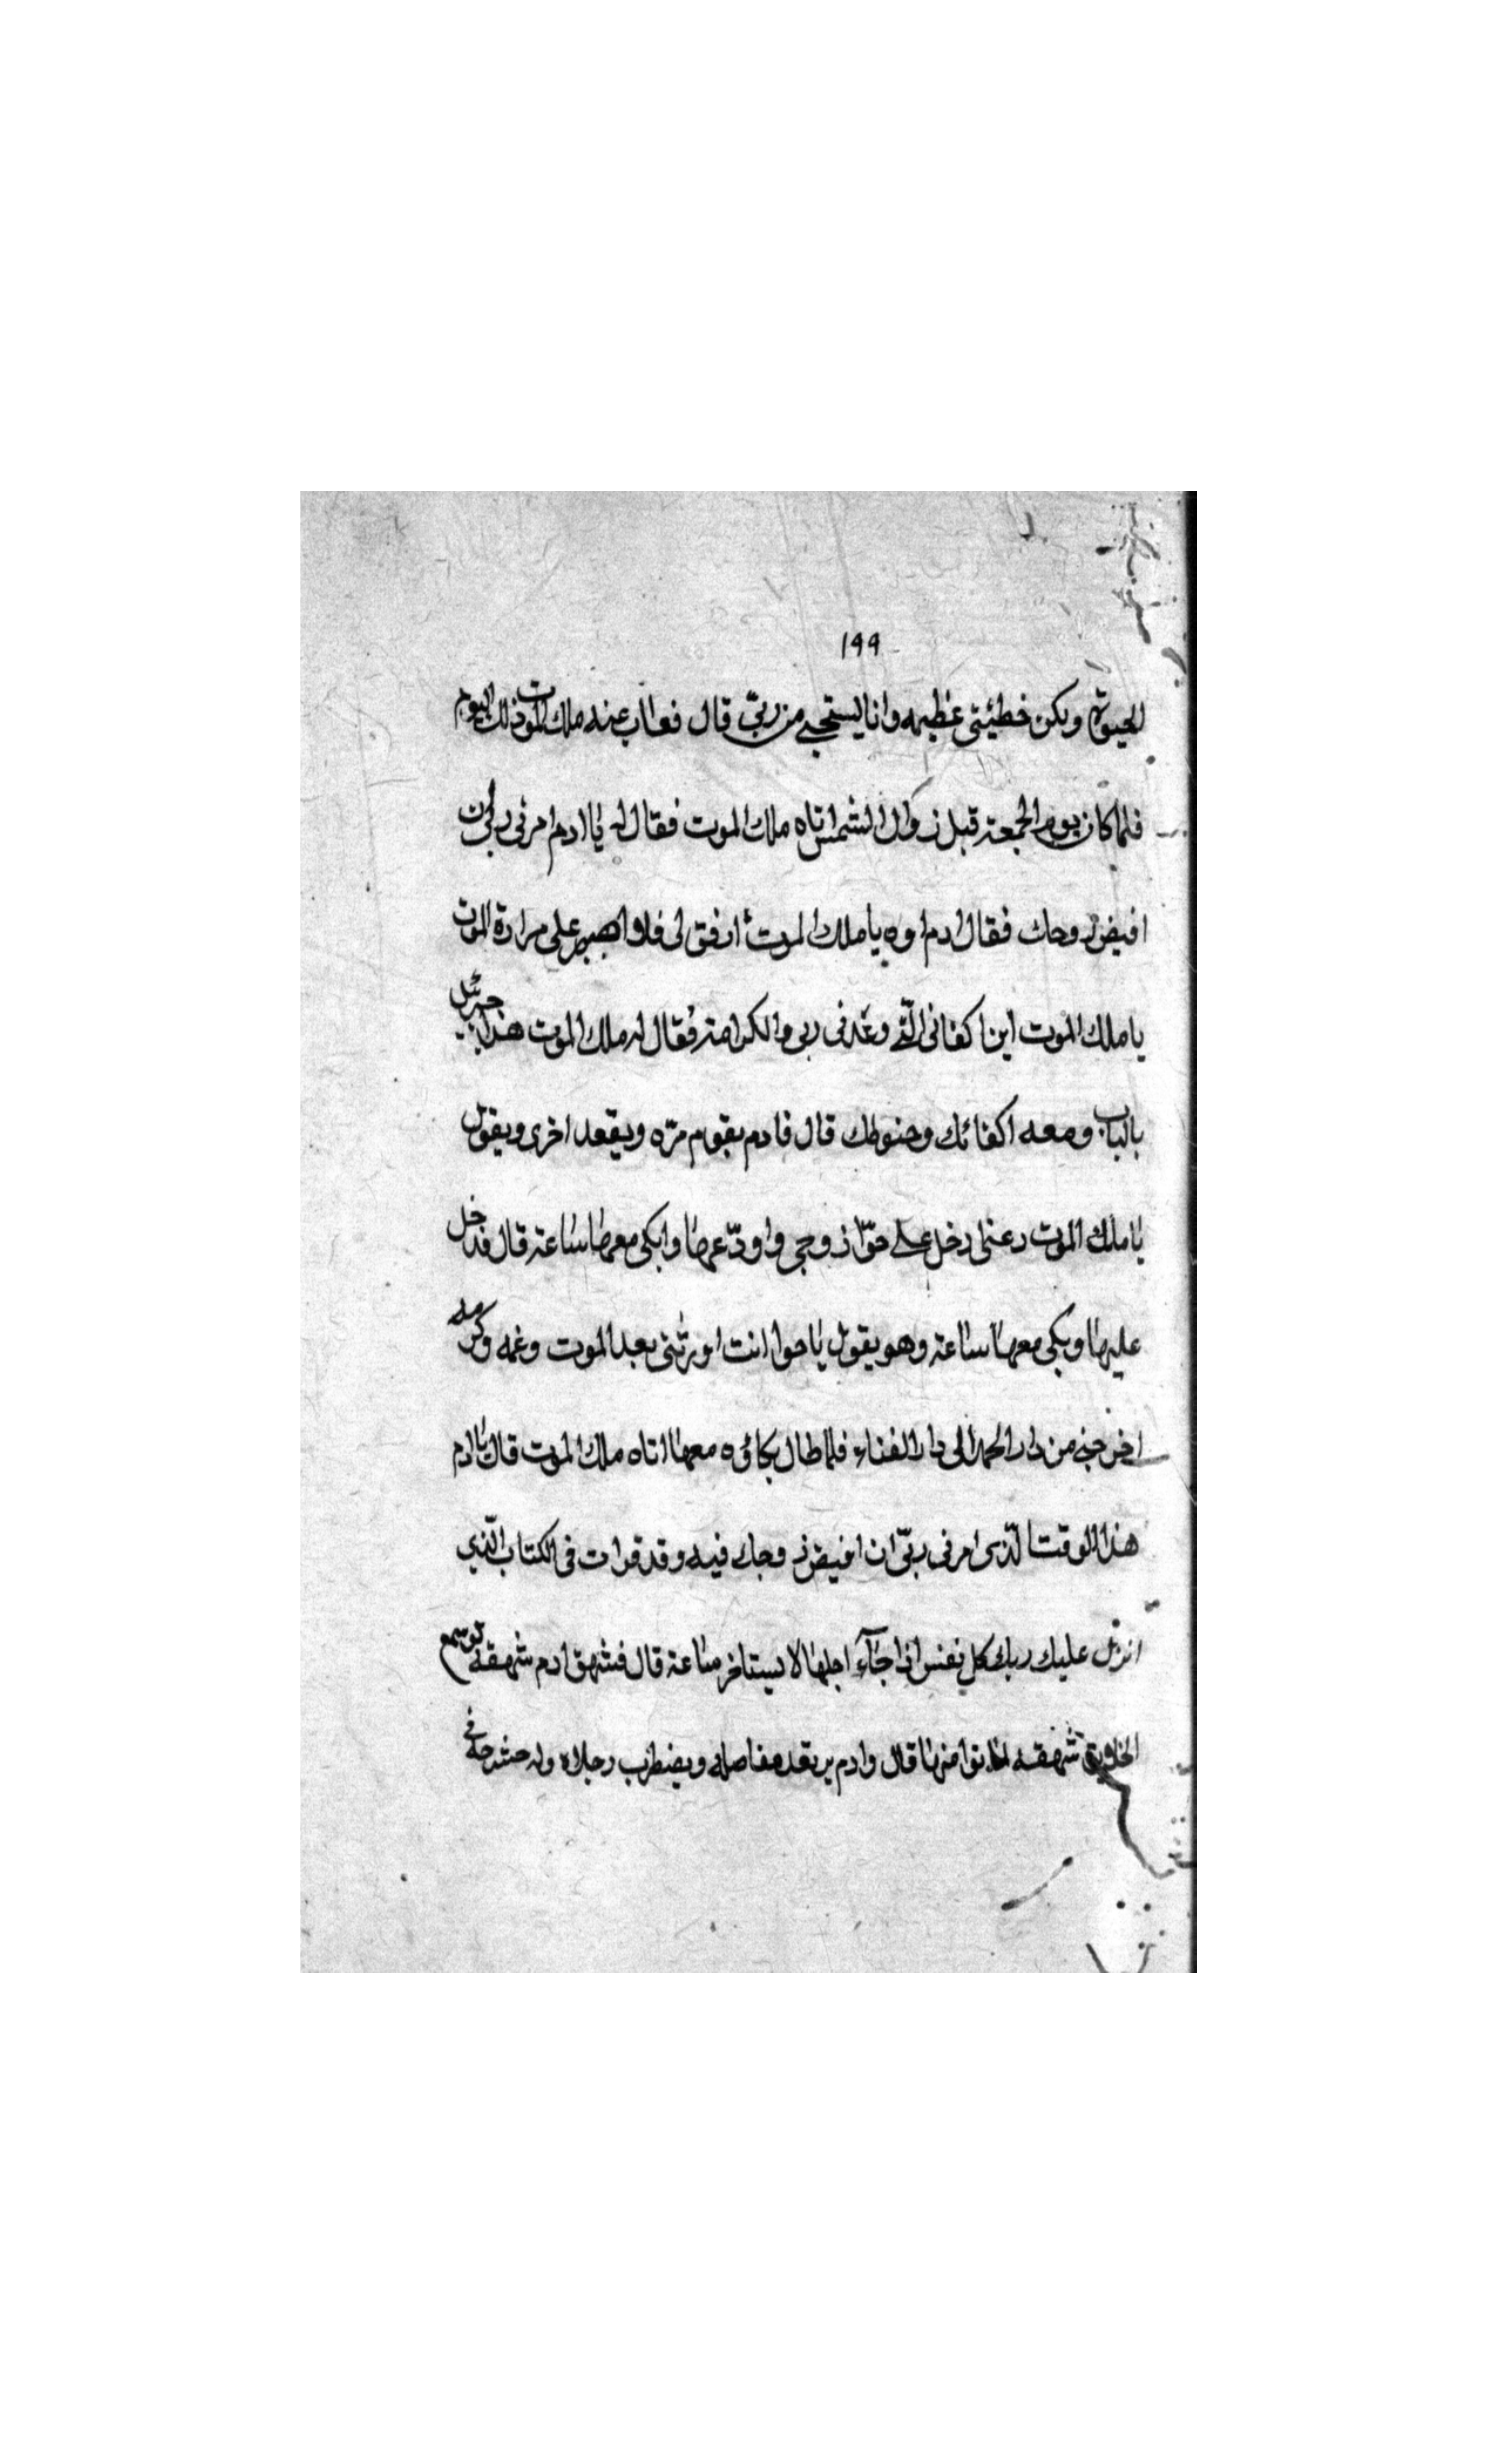 ١٩٩
الحيوة ولكن خطيئتى عظيمه وانا يستحيى من ربّى قال فغاب عنه ملك الموت ذلك اليوم
فلما كان يوم الجمعة قبل زوال الشمس اتاه ملك الموت فقال له يا ادم امرنى ربى ان
اقبض روحك فقال ادم اوه يا ملك الموت ارفق لى فلا اصبر على مرارة الموت
يا ملك الموت اين اكفانى الّتى وعدنى ربى والكرامة فقال له ملك الموت هذا جبرئيل
بالباب ومعه اكفانك وحنوطك قال فادم يقوم مرّه ويقعد اخرى ويقول
يا ملك الموت دعنى ادخل على حوّا زوجى واودّعها وابكى معها ساعة قال فدخل
عليها وبكى معها ساعة وهو يقول يا حوا انت اورثتنى بعد الموت وغمه وكربه
اخرجنى من دار الخلد الى دار الفناء فلما طال بكاؤه معها اتاه ملك الموت قال يا ادم
هذا الوقت الّذى امرنى ربّى ان اقبض روحك فيه وقد قرات فى الكتاب الّذى
انزل عليك ربك كل نفس اذا جآء اجلها لا يستاخر ساعة قال فشهق ادم شهقه لو سمع
الخلايق شهقه لماتوا منها قال وادم يرتعد مفاصله ويضطرب رجلاه وله حشرجة فى